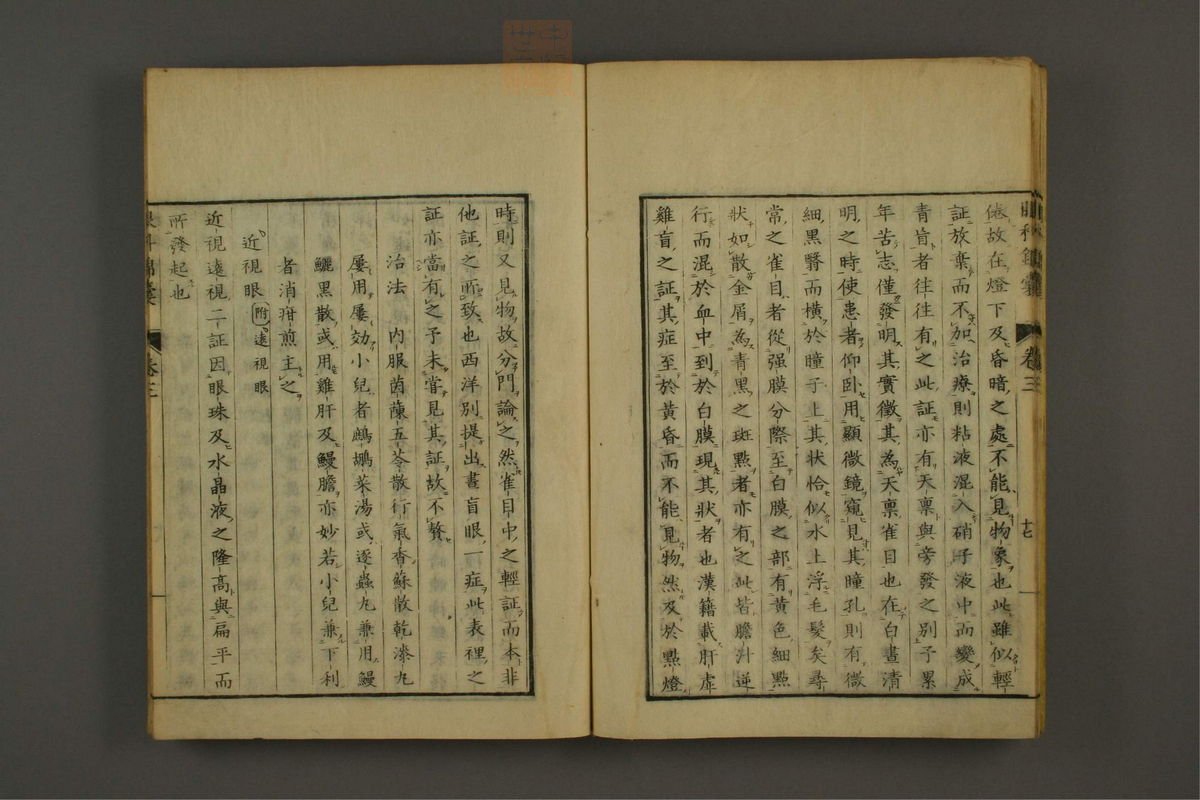 倦故在燈下及昏暗之處不能見物象也此雖似輕
証放棄而不加治療則粘液混入硝子液中而變成
青盲者往往有之此証亦有天稟與旁發之別予累
年苦志僅發明其實徵其為天稟雀目也在白晝清
明之時使患者仰臥用顯微鏡窺見其瞳孔則有微
細黑翳而橫於瞳子上其狀恰似水上浮毛髮矣尋
常之雀目者從强膜分際至白膜之部有黃色細點
狀如散金屑為青黑之斑點者亦有之此皆膽汁逆
行而混於血中到於白膜現其狀者也漢籍載肝虛
雞盲之証其症至於黃昏而不能見物然及於點燈
時則又見物故分門論之然雀目中之輕証而本非
他証之所致也西洋別提出晝盲眼一症此表裡之
証亦當有之予未嘗見其証故不贅
治法 內服茵蔯五苓散行氣香蘇散乾漆丸
屢用屢効小兒者鷓鴣菜湯或逐蟲丸兼用鰻
鱺黑散或用雞肝及鰻膽亦妙若小兒兼下利
者消疳煎主之
近視眼 附遠視眼
近視遠視二証因眼珠及水晶液之隆高與扁平而
所發起也
卷三
十七
卷三